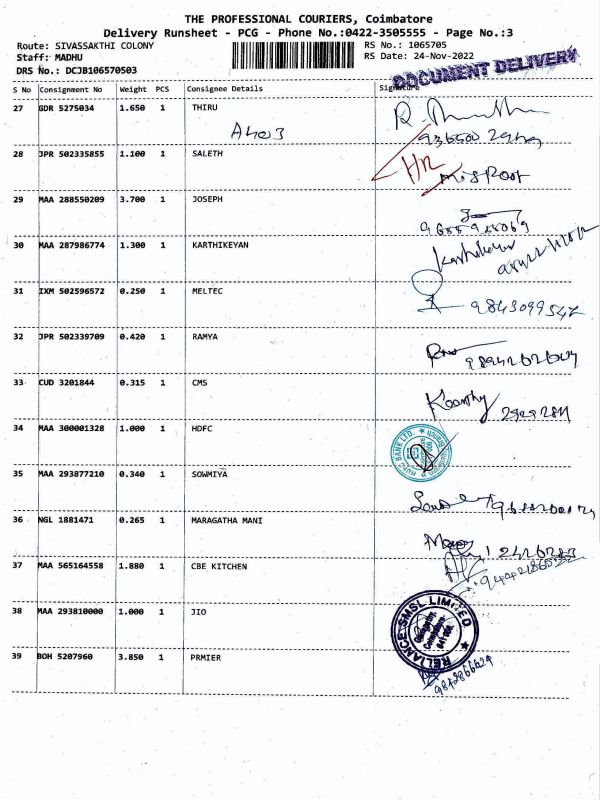 THE PROFESSIONAL COURIERS, Coimbatore
Delivery Runsheet - PCG - Phone No.:0422-3505555 - Page No.:3
Route: SIVASSAKTHI COLONY RS No.: 1065705
Staff: MADHU RS Date: 24-Nov-2022
DRS No.: DCJB106570503
DOCUMENT DELIVERY
S No Consignment No Weight PCS Consignee Details Signature
27 GDR 5275034 1.650 1 THIRU
28 JPR 502335855 1.100 1 SALETH
29 MAA 288550209 3.700 1 JOSEPH
30 MAA 287986774 1.300 1 KARTHIKEYAN
Karthikeyan
31 IXM 502596572 0.250 1 MELTEC
9843099542
32 JPR 502339709 0.420 1 RAMYA
33 CUD 3201844 0.315 1 CMS
34 MAA 300001328 1.000 1 HDFC
HDFC BANK LTD.
35 MAA 293877210 0.340 1 SOWMIYA
36 NGL 1881471 0.265 1 MARAGATHA MANI
37 MAA 565164558 1.880 1 CBE KITCHEN
38 MAA 293810000 1.000 1 JIO
RELIANCE SMSL LIMITED
39 BOH 5207960 3.850 1 PRMIER
9842866629